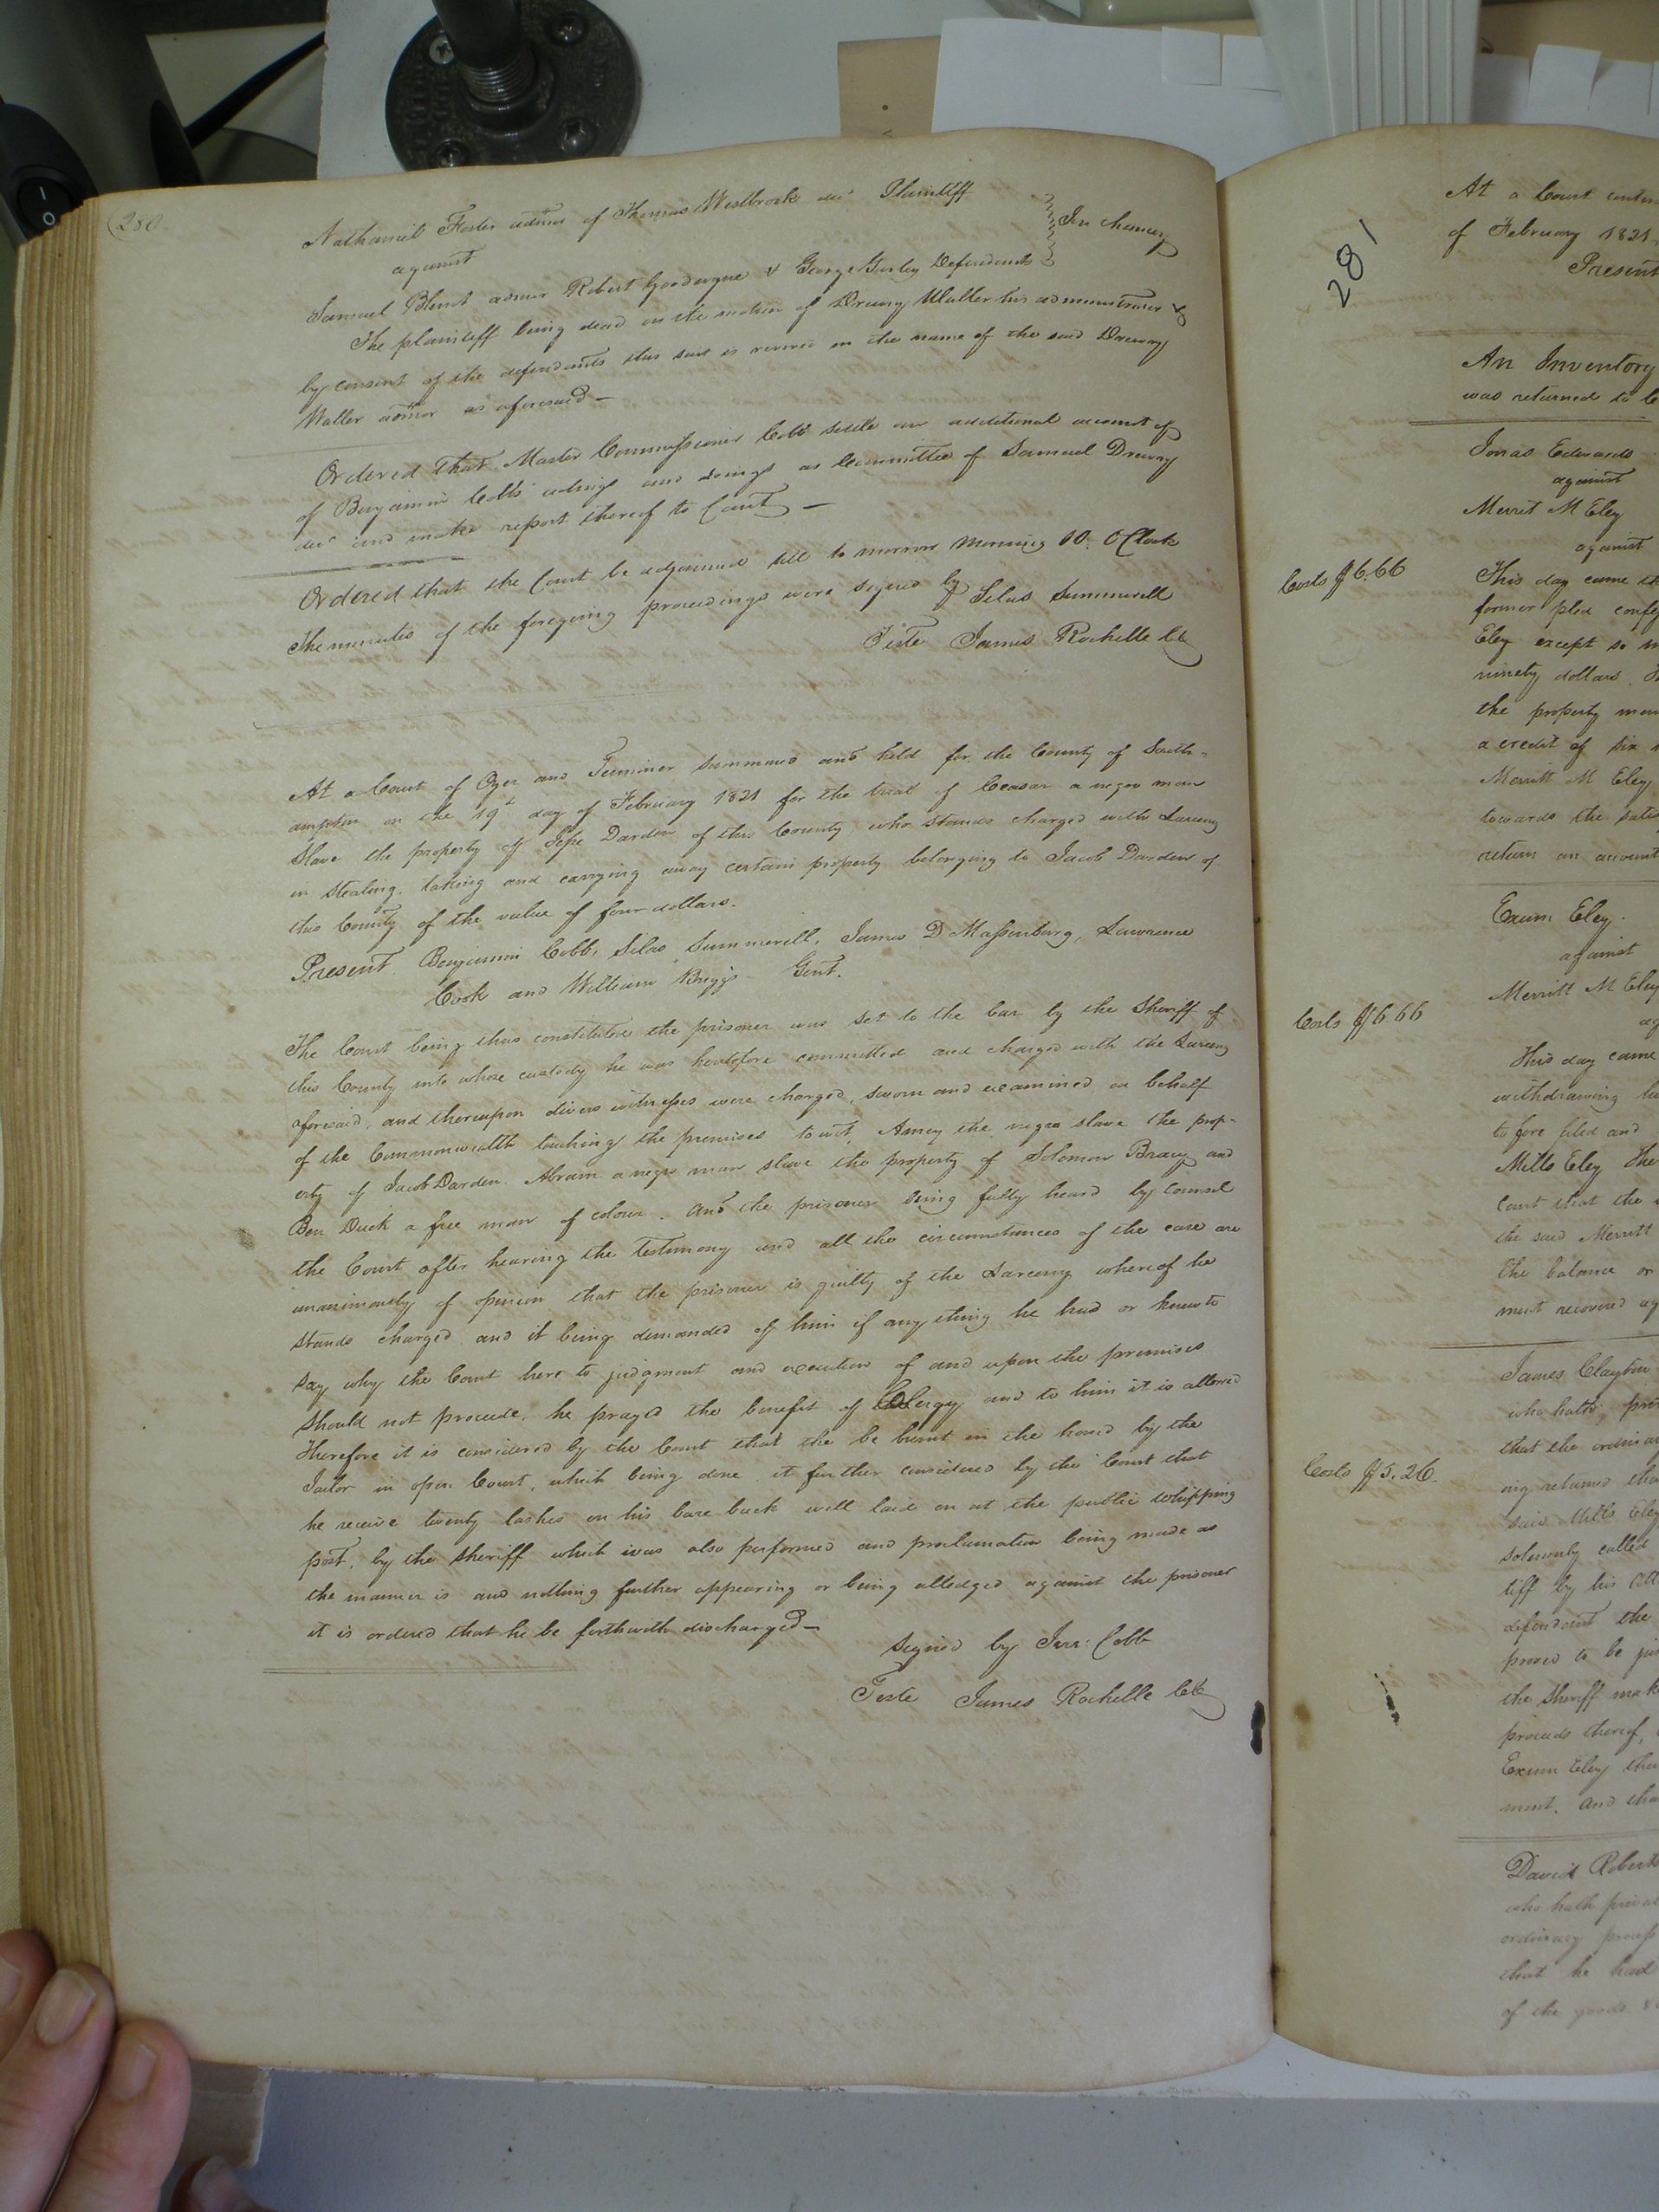 280
Nathaniel Foster admr of Thomas Westbrook decd Plaintiff
against
In chancery
Samuel Blunt admor Robert Goodwyne & George Gurley Defendants
The plaintiff being dead on the motion of Drewry Waller his administrator &
by consent of the defendants this suit is revived in the name of the said Drewry
Waller admor as aforesaid —
Ordered that Master Commissioner Cobb settle an additional account of
of Benjamin Cobbs actings and doings as Committee of Samuel Drewry
decd and make report thereof to Court —
Ordered that the Court be adjourned till to morrow Morning 10. OClock
The minutes of the foregoing proceedings were signed by Silas Summerell
Teste James Rochelle Clk
At a Court of Oyer and Terminer summoned and held for the County of South-
ampton on the 19th day of February 1821 for the trial of Ceasar a negro man
Slave the property of Jesse Darden of this County who stands charged with Larceny
in stealing, taking and carrying away certain property belonging to Jacob Darden of
this County of the value of four dollars.
Present. Benjamin Cobb, Silas Summerell, James D Massenburg, Lawrence
Cook and William Briggs Gent.
The Court being thus constituted the prisoner was set to the bar by the Sheriff of
this County into whose custody he was heretofore committed and charged with the Larceny
aforesaid, and thereupon divers witnesses were charged, sworn and examined on behalf
of the Commonwealth touching the premises to wit, Amey the negro slave the prop-
erty of Jacob Darden. Abram a negro man slave the property of Solomon Bracy and
Ben Duck a free man of colour. and the prisoner being fully heard by Counsel
the Court after hearing the Testimony and all the circumstances of the case are
unanimously of opinion that the prisoner is guilty of the Larceny whereof he
stands charged and it being demanded of him if any thing he had or knew to
say why the Court here to judgment and execution of and upon the premises
should not proceede, he prayed the benefit of Clergy and to him it is allowed
Therefore it is considered by the Court that the be burnt in the hand by the
Jailor in open Court, which being done it further considered by the Court that
he receive twenty lashes on his bare back well laid on at the public whipping
post, by the Sheriff which was also performed and proclamation being made as
the manner is and nothing further appearing or being alledged against the prisoner
it is ordered that he be forthwith discharged—
Signed by Cobb
Teste James Rochelle Clk
281
At a Court
of February 1821
Present
An Inventory
was returned to
Jonas Edwards
against
Merrit M Eley
against
Costs $6.66
This day came
former plea
Eley except so
ninety dollars.
the property
a credit of six
Merritt M Eley
towards the
return an account
Exum Eley.
against
Merritt M Eley
Costs $6 66
This day came
withdrawing
to fore filed and
Mills Eley The
Court that the
the said Merritt
the balance or
ment recovered
James Clayton
who hath
that the ordinary
Costs $5.26.
ing returned
said Mills Eley
solemnly called
tiff by his
defendant the
proved to be
the sheriff
proceeds thereof,
Exum Eley
ment. and
David
who hath
ordinary
that he had
of the goods